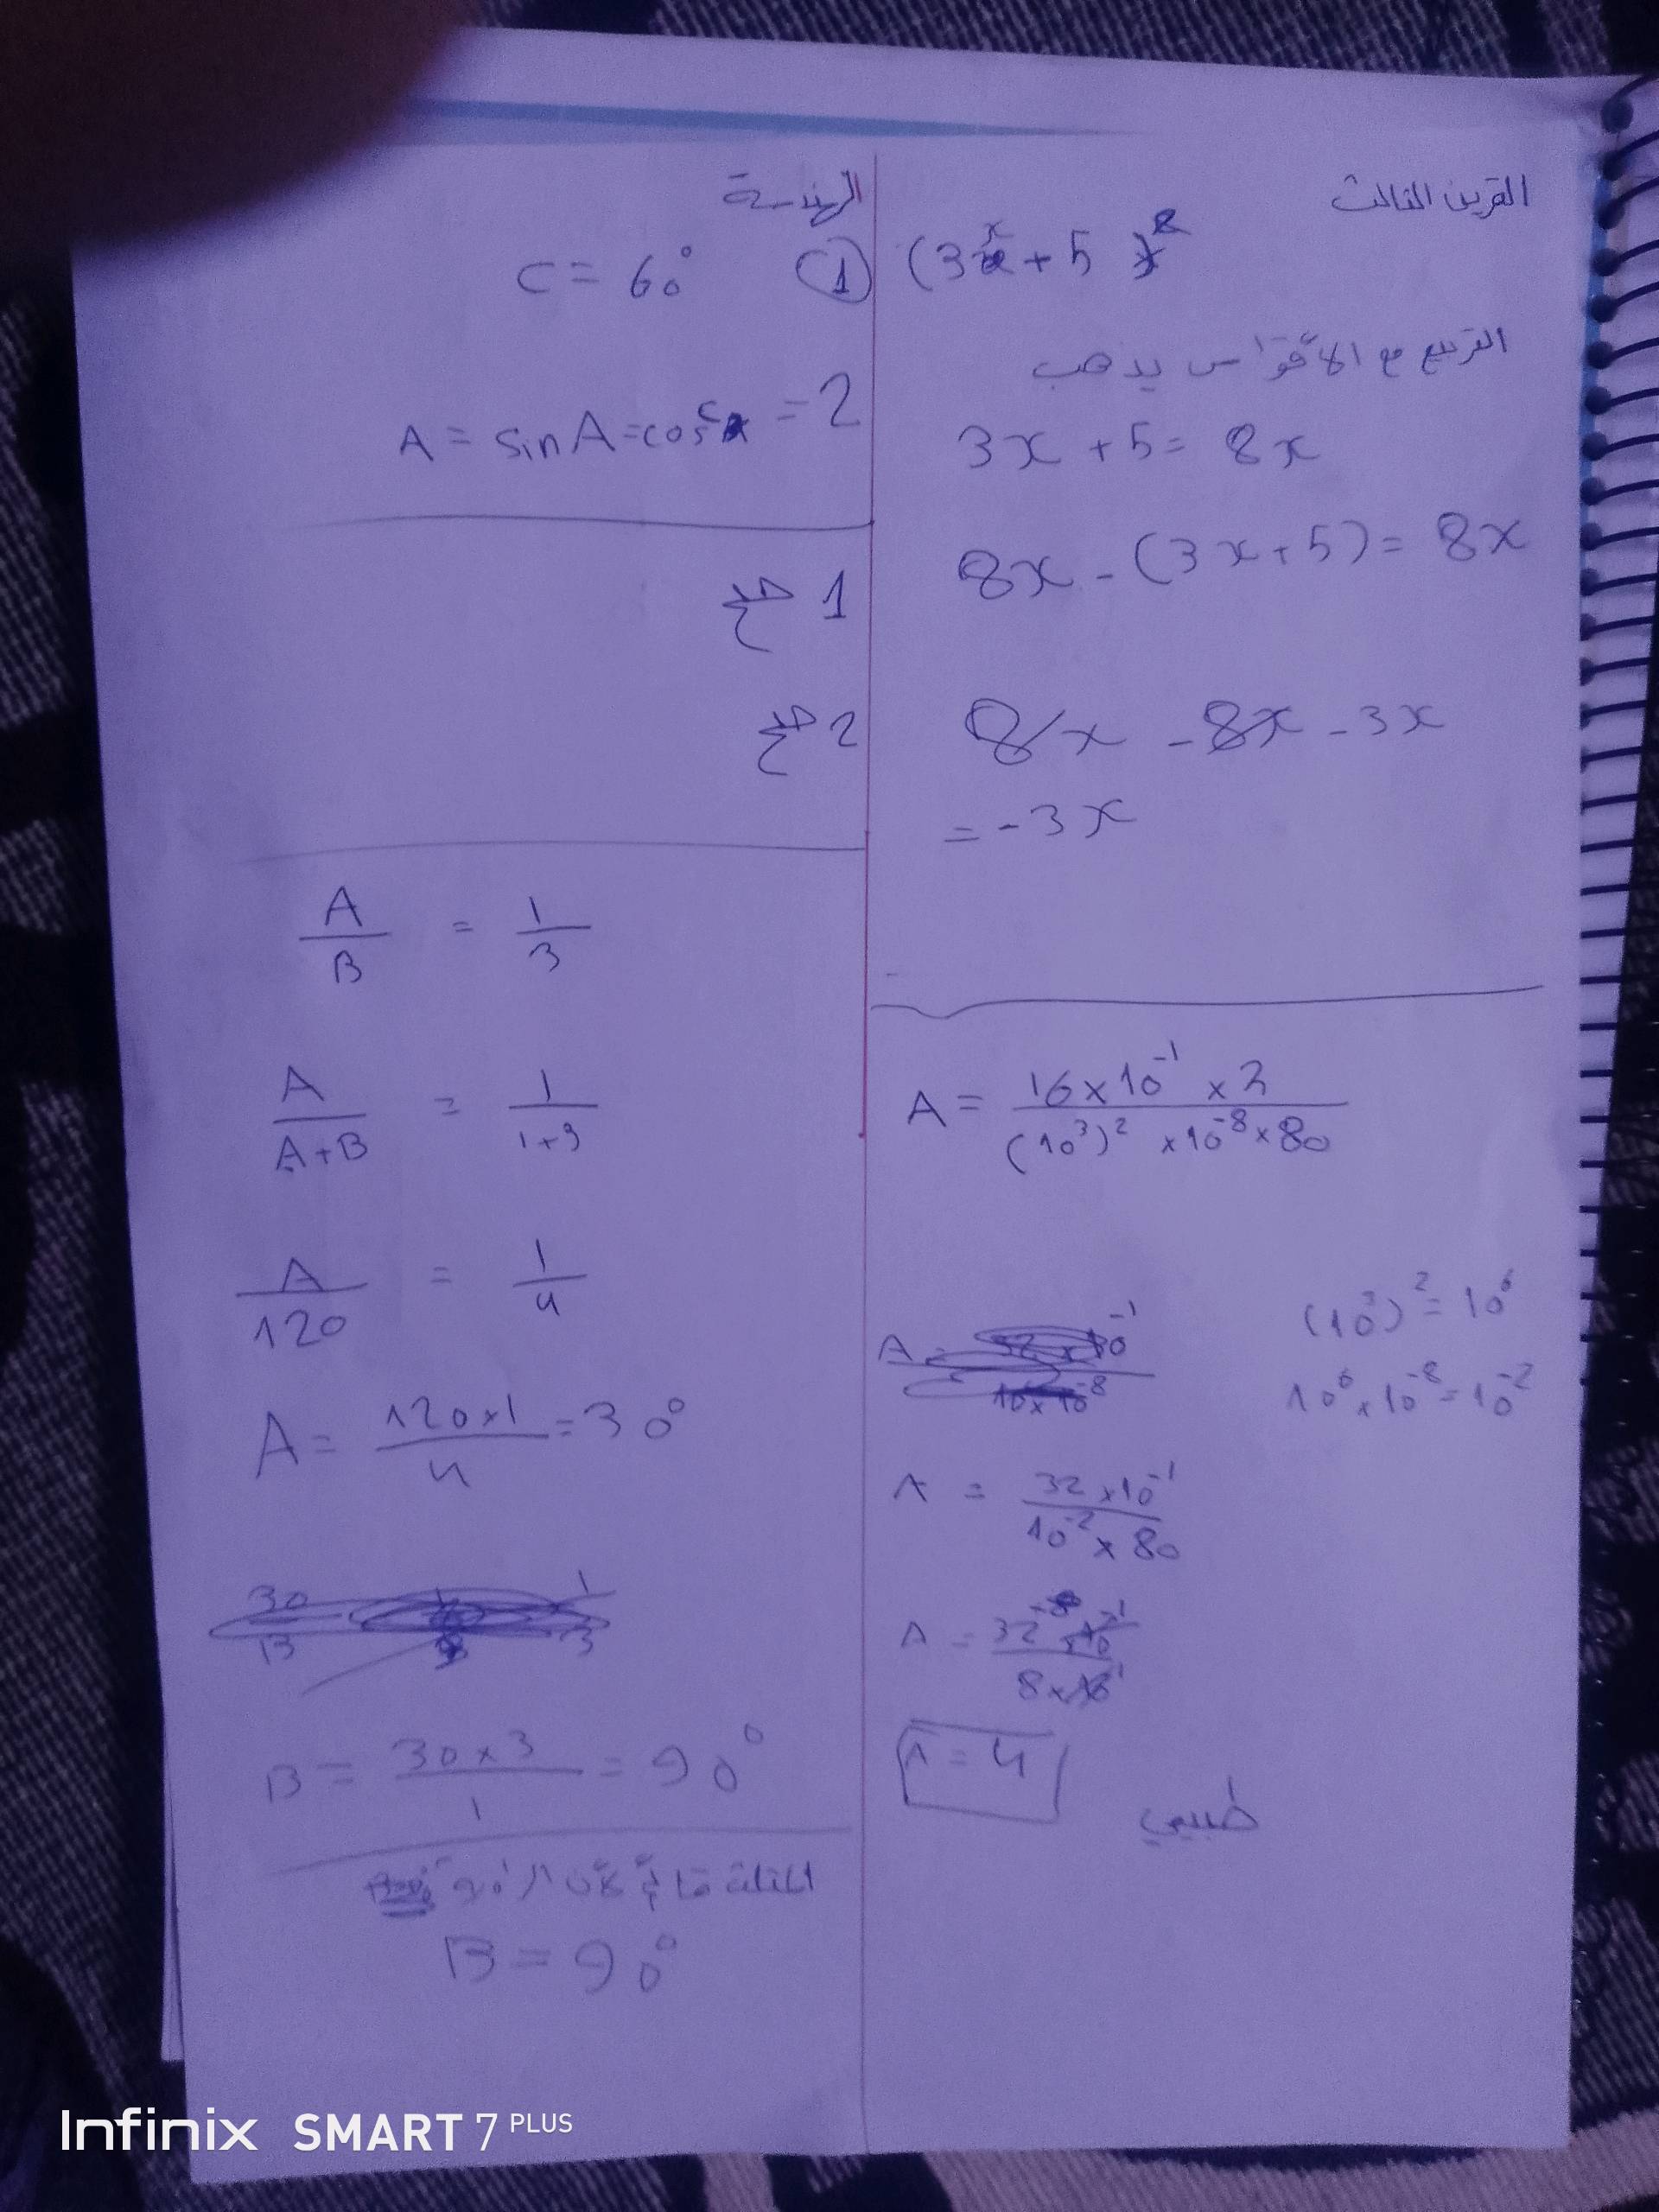 التمرين الثالث
(3x + 5)²
التربيع مع الأقواس يذهب
3x + 5 = 8x
8x - (3x + 5) = 8x
8x - 8x - 3x
= -3x
A = 16 × 10⁻¹ × 2 / (10³)² × 10⁻⁸ × 80
(10³)² = 10⁶
10⁶ × 10⁻⁸ = 10⁻²
A = 32 × 10⁻¹ / 10⁻² × 80
A = 4
طبيعي
الهندسة
1 C = 60°
2 A = sin A = cos C
1 صح
2 صح
A / B = 1 / 3
A / A + B = 1 / 1 + 3
A / 120 = 1 / 4
A = 120 × 1 / 4 = 30°
B = 30 × 3 / 1 = 90°
B = 90°
Infinix SMART 7 PLUS